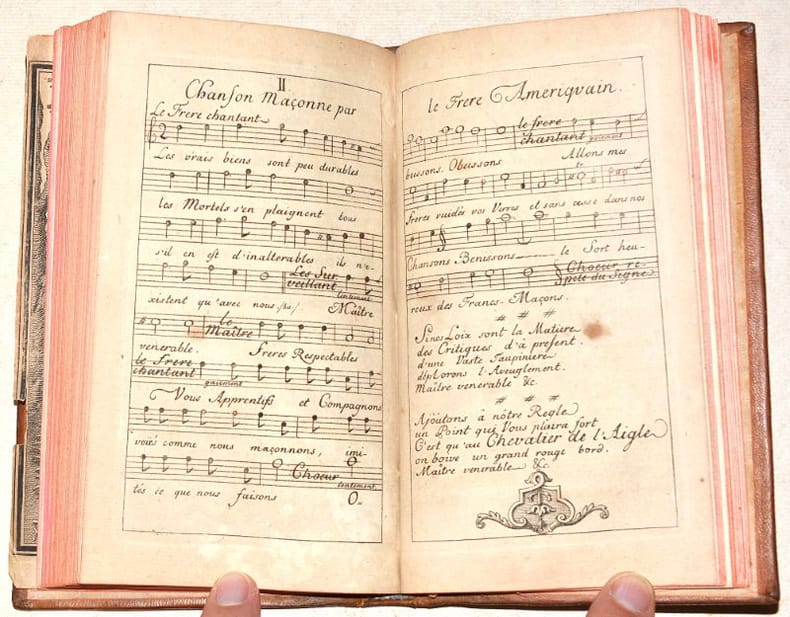 II.
Chanson Maçonne par
Le Frere chantant
Les vrais biens sont peu durables
les Mortels s'en plaignent tous
s'il en est d'inalterables ils n'e-
Les Sur
veillant
lentement
xistent qu'avec nous /bis/ Maître
le
Maître
venerable. Freres Respectables
le Frere
chantant
gaiement
Vous Apprentifs et Compagnons
voiés comme nous maçonnons, imi-
Choeur
lentement
tés ce que nous faisons O-
le Frere Ameriquain.
le frere
chantant
beissons. Obeissons Allons mes
tr
freres vuidés vos Verres et sans cesse dans nos
Chansons Benissons le Sort heu-
Choeur re-
pete du Signe
reux des Francs-Maçons.
# # #
Si nos Loix sont la Matiere
des Critiques d'à present.
d'une Vaste Taupiniere
déplorons l'Aveuglement.
Maître venerable &c.
# # #
Ajoûtons à nôtre Regle
un Point qui Vous plaira fort
C'est qu'au Chevalier de l'Aigle
on boive un grand rouge bord.
Maître venerable &c.